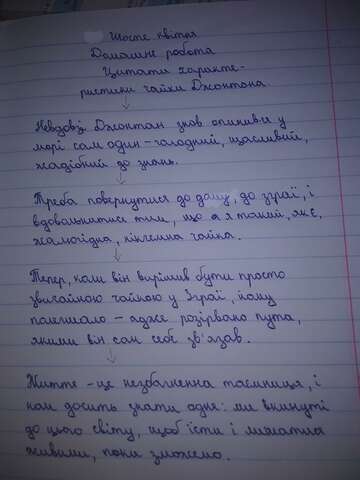 Шосте квітня
Домашнє робота
Цитати характе-
ристики чайки Джонтона.
Невдовзі Джонтан знов опинився у
морі сам один – голодний, щасливий,
жадібний до знань.
Треба повернутися до дому, до зграї, і
вдовольнитися тим, що а я такий, як є,
жалюгідна, нікчемна чайка.
Тепер, коли він вирішив бути просто
звичайною чайкою у Зграї, йому
полегшало – адже розірвано пута,
якими він сам себе зв'язав.
Життє – це незбагненна таємниця, і
нам досить знати одне: ми вкинуті
до цього світу, щоб їсти і лишатися
живими, поки зможемо.